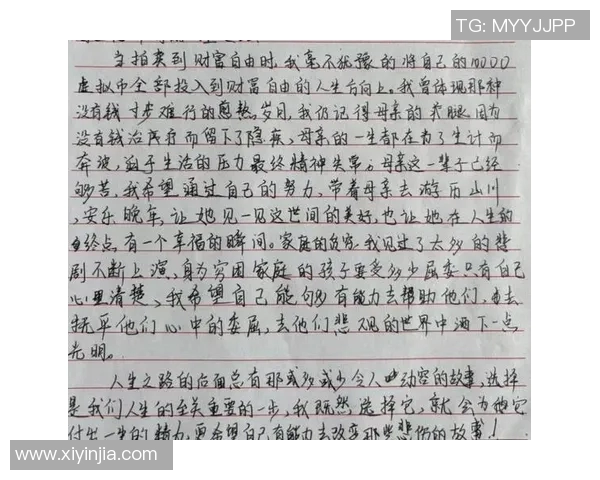 TG: MYYJJPP
当拍卖到财富自由时,我毫不犹豫的将自己的10000
虚拟币全部投入到财富自由的人生方向上。我曾体现那种
没有钱寸步难行的煎熬岁月,我仍记得母亲的 腿因为
没有钱治疗而留下了隐疾,母亲的一生都在为了生计而
奔波,迫于生活的压力最终精神失常。母亲这一辈子已经
够苦,我希望通过自己的努力,带着母亲去游历山川
,安乐晚年,让她见一见这世间的美好,也让她在人生的
终点有一个幸福的瞬间。家庭的贫穷,我见过了太多的悲
剧不断上演,身为穷困家庭的孩子要受多少屈委只有自己
心里清楚,我希望自己能够有能力去帮助他们,去
抚平他们心中的委屈,去他们悲观的世界中洒下一点
光明。
人生之路的后面总有那或多或少令人动容的故事,选择
是我们人生的至关重要的一步,我既然选择它,就会为他
付出一生的精力,更希望自己有能力去改变那些悲伤的故事!
www.xiyinjia.com